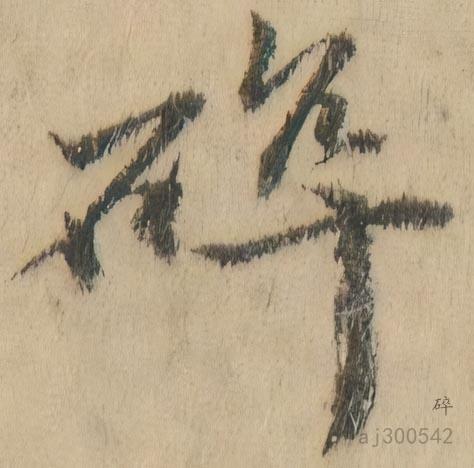 碎
碎
aj300542